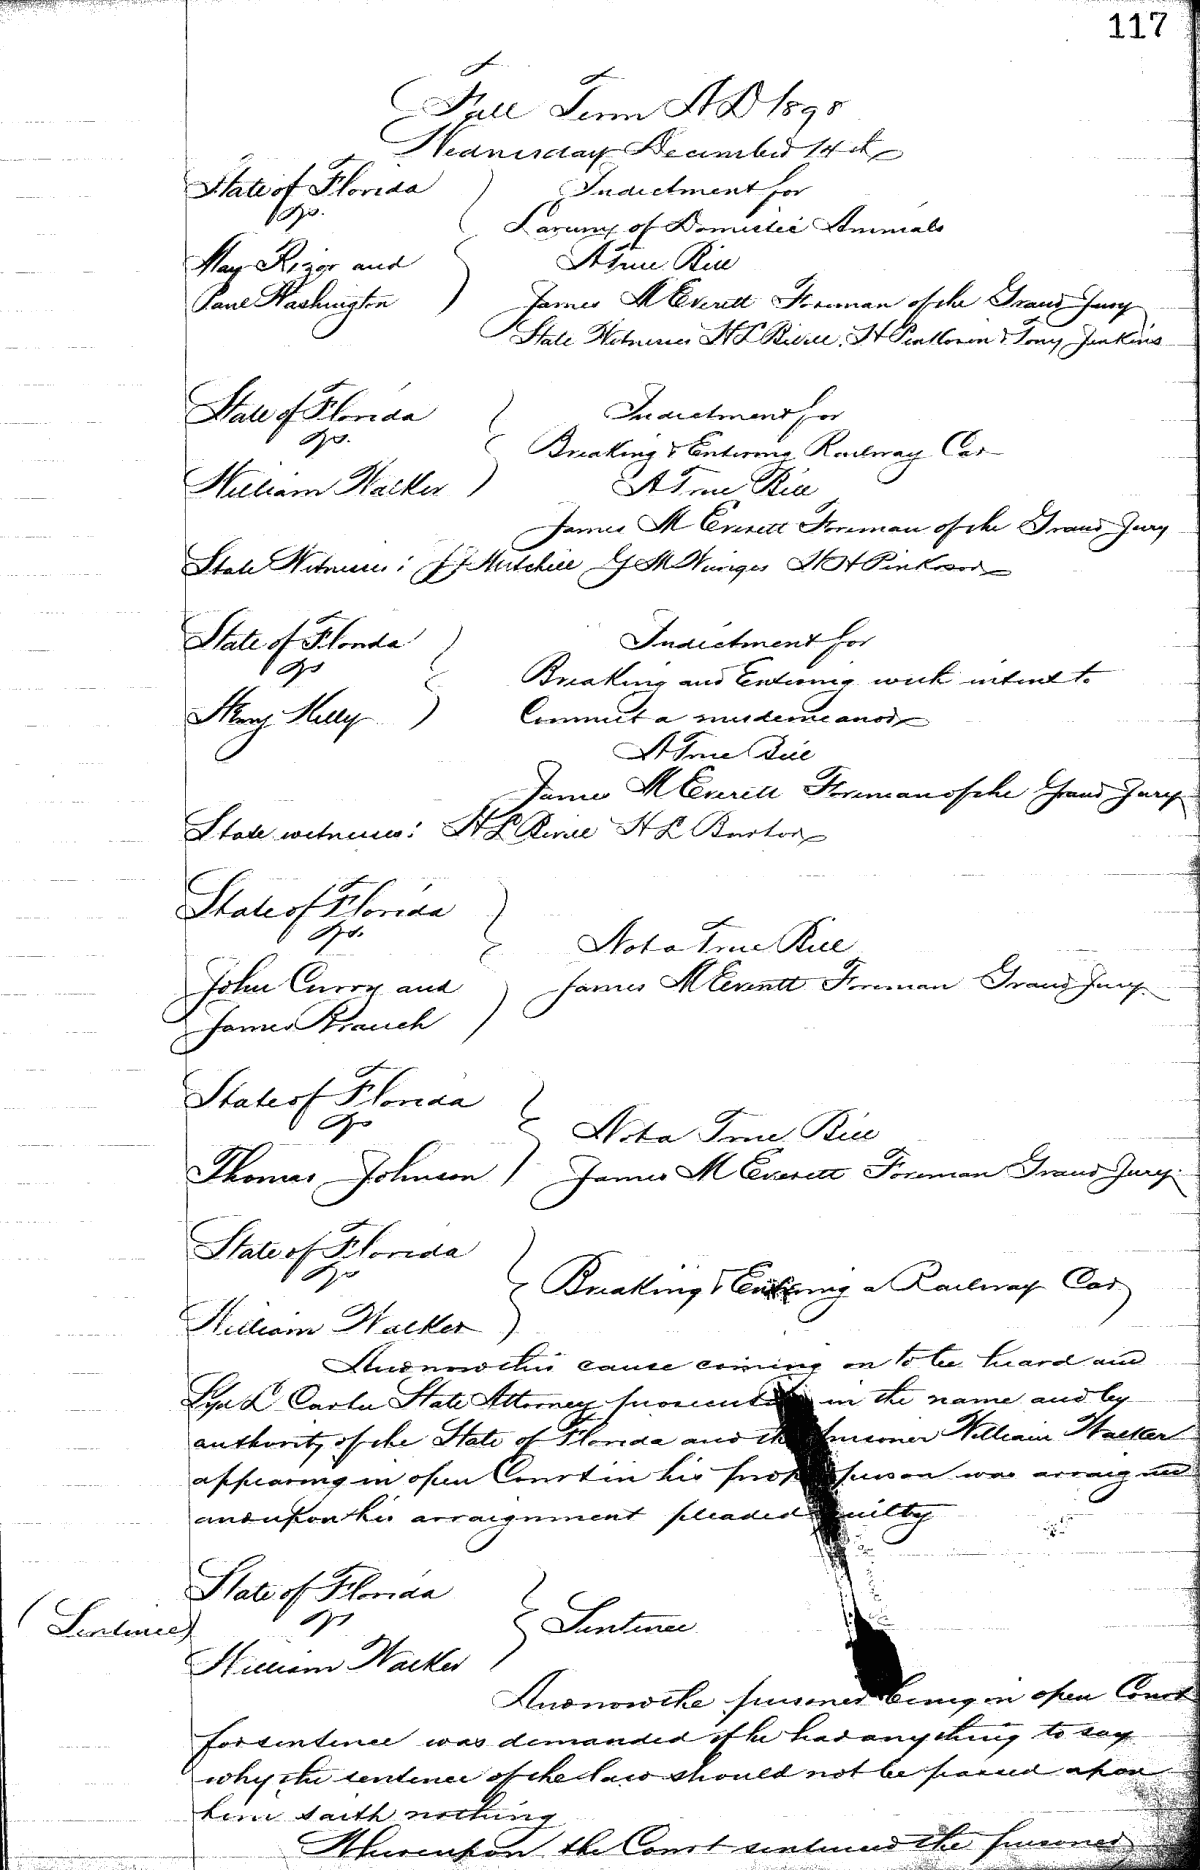 117
Fall Term A D 1898
Wednesday December 14th
State of Florida Indictment for
vs. Larceny of Domestic Animals
May Rizor and A True Bill
Paul Washington James M Everett Foreman of the Grand Jury
State Witnesses H L Tony Jenkins
State of Florida Indictment for
vs. Breaking & Entering Railway Car
William Walker A True Bill
James M Everett Foreman of the Grand Jury
State Witnesses: J J Mitchell G M
State of Florida Indictment for
vs Breaking and Entering with intent to
Henry Kelly Commit a misdemeanor
A True Bill
James M Everett Foreman of the Grand Jury
State witnesses: H L H L Barton
State of Florida
vs. Not a True Bill
John Curry and James M Everett Foreman Grand Jury.
James Branch
State of Florida
vs Not a True Bill
Thomas Johnson James M Everett Foreman Grand Jury.
State of Florida
vs Breaking & Entering a Railway Car
William Walker
And now this cause coming on to be heard and
L Carter State Attorney prosecuting in the name and by
authority of the State of Florida and the prisoner William Walker
appearing in open Court in his proper person was arraigned
and upon his arraignment pleaded guilty
State of Florida
Sentence vs Sentence
William Walker
And now the prisoner being in open Court
for sentence was demanded if he had anything to say
why the sentence of the law should not be passed upon
him saith nothing
Whereupon the Court sentenced the prisoner